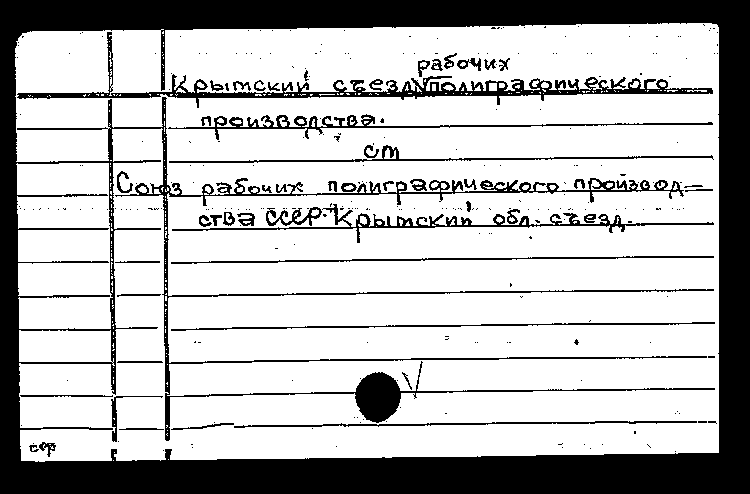 рабочих
Крымский съезд √ полиграфического
производства.
см
Союз рабочих полиграфического производ-
ства СССР. Крымский обл. съезд.